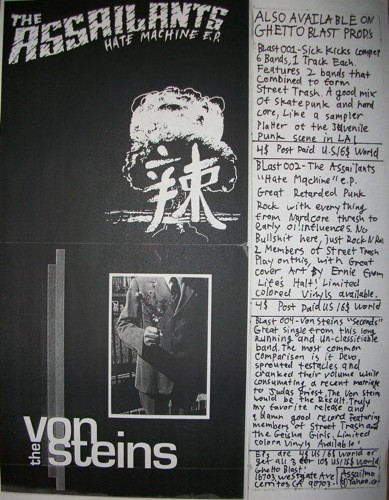 THE ASSAILANTS
HATE MACHINE E.P.
辣
the von steins
ALSO AVAILABLE ON
GHETTO BLAST PROD'S
BLAST 001-Sick Kicks comp e.p.
6 Bands, 1 Track Each.
Features 2 bands that
Combined to form
Street Trash. A good mix
of skatepunk and hard
core, Like a sampler
Platter of the Juvenile
Punk scene in LA!
4$ Post Paid U.S/6$ World
BLast 002-The Assailants
"Hate Machine" e.p.
Great Retarded Punk
Rock with everything
from Nardcore thrash to
early oi! influences. No
Bullshit here, Just Rock N Roll
2 Members of Street Trash
Play on this, with Great
cover Art By Ernie From
Life's Halt! Limited
colored Vinyls available.
4$ Post Paid US/6$ World
Blast 004-Von Steins "Seconds"
Great single from this long
running and un-classifiable
band. The most common
comparison is if Devo
sprouted testacles and
cranked their volume while
consumating a recent marriage
to Judas Priest. The Von Steins
would be the Result. Truly
my favorite release and
a damn good record featuring
members of Street Trash and
the Geisha Girls. Limited
colors Vinyl Available!
EPs are 4$ US/6$ World or
get all 3 for 10$ US/15$ World
Ghetto Blast!
16703 Westgate Ave
Cerritos CA 90703-